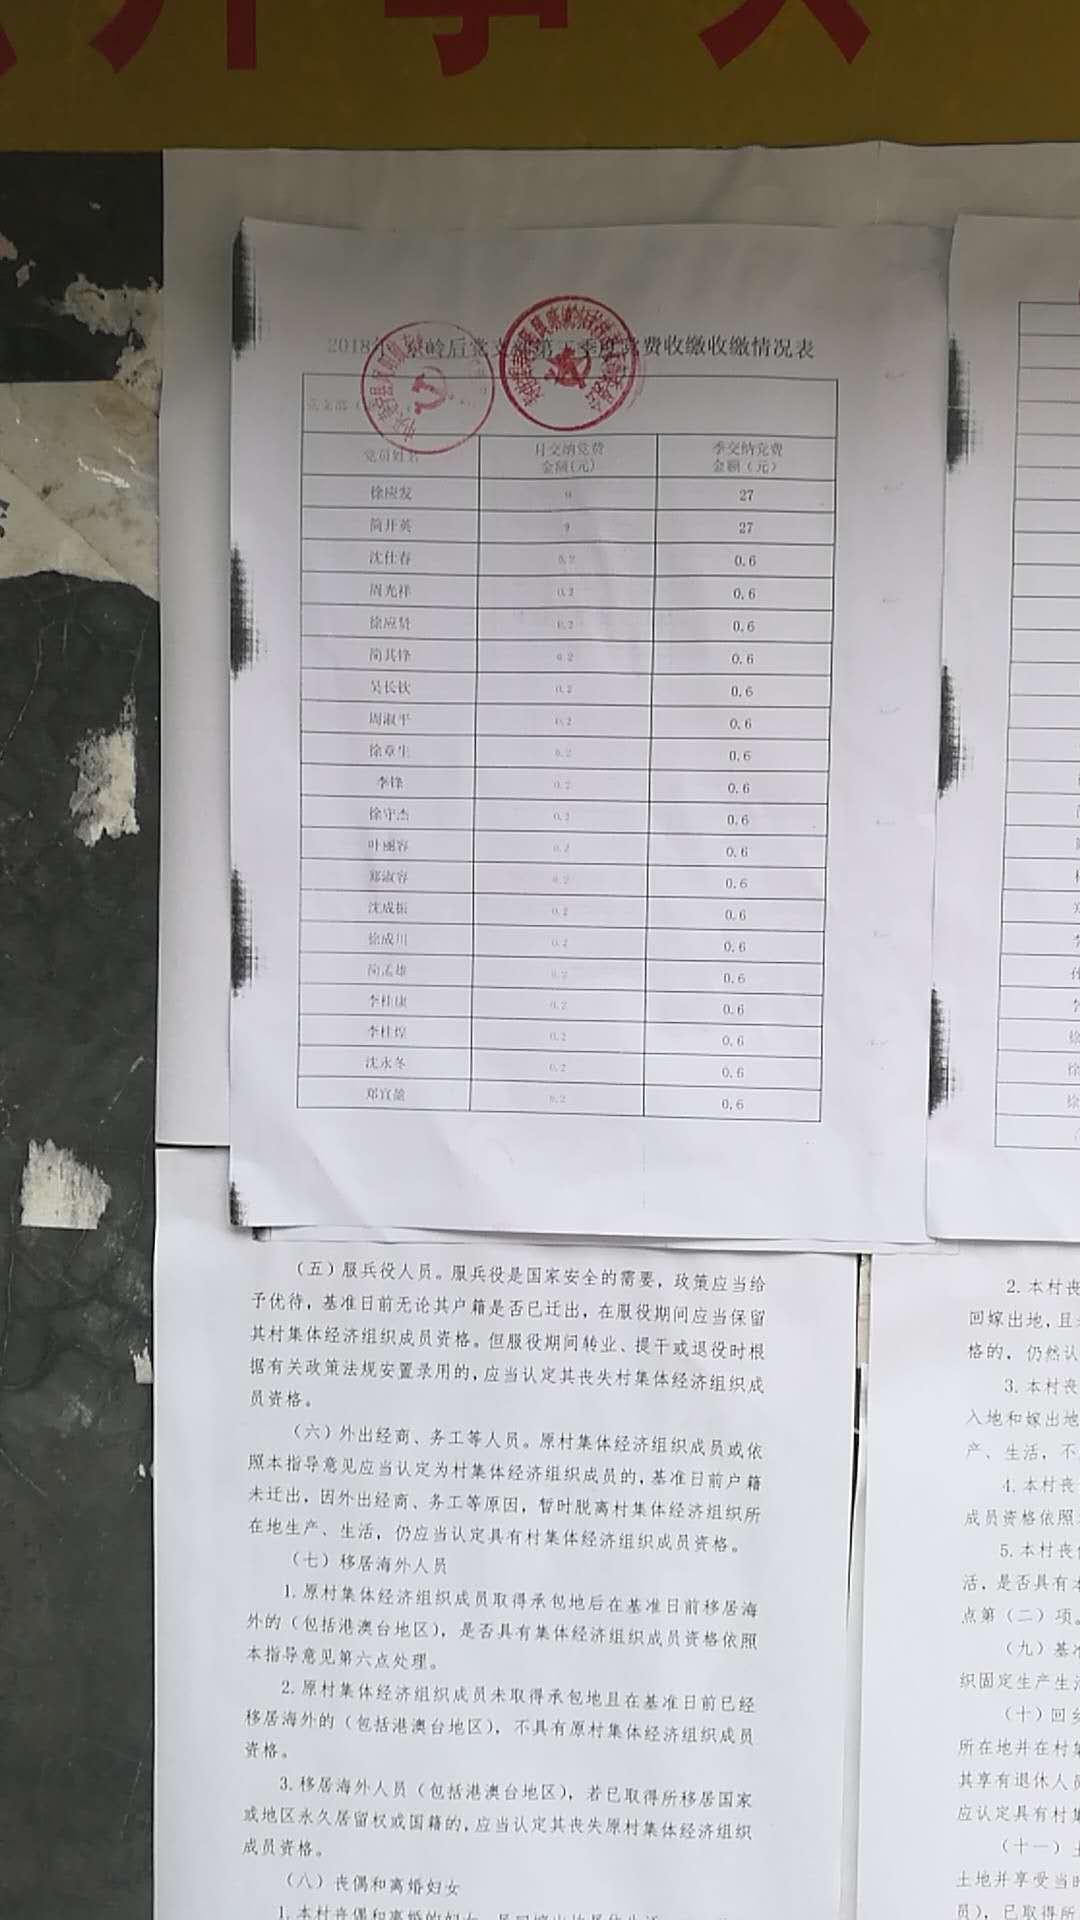 第二季度党费收缴收缴情况表
党员姓名 月交纳党费金额(元) 季交纳党费金额（元）
徐应发 9 27
简开英 9 27
沈仕春 0.2 0.6
周光祥 0.2 0.6
徐应贤 0.2 0.6
简其锋 0.2 0.6
吴长钦 0.2 0.6
周淑平 0.2 0.6
徐章生 0.2 0.6
李锋 0.2 0.6
徐守杰 0.2 0.6
叶丽容 0.2 0.6
郑淑容 0.2 0.6
沈成振 0.2 0.6
徐成川 0.2 0.6
简孟雄 0.2 0.6
李桂康 0.2 0.6
李桂煌 0.2 0.6
沈永冬 0.2 0.6
郑宜盈 0.2 0.6
（五）服兵役人员。服兵役是国家安全的需要，政策应当给
予优待，基准日前无论其户籍是否已迁出，在服役期间应当保留
其村集体经济组织成员资格。但服役期间转业、提干或退役时根
据有关政策法规安置录用的，应当认定其丧失村集体经济组织成
员资格。
（六）外出经商、务工等人员。原村集体经济组织成员或依
照本指导意见应当认定为村集体经济组织成员的，基准日前户籍
未迁出，因外出经商、务工等原因，暂时脱离村集体经济组织所
在地生产、生活，仍应当认定具有村集体经济组织成员资格。
（七）移居海外人员
1.原村集体经济组织成员取得承包地后在基准日前移居海
外的（包括港澳台地区），是否具有集体经济组织成员资格依照
本指导意见第六点处理。
2.原村集体经济组织成员未取得承包地且在基准日前已经
移居海外的（包括港澳台地区），不具有原村集体经济组织成员
资格。
3.移居海外人员（包括港澳台地区），若已取得所移居国家
或地区永久居留权或国籍的，应当认定其丧失原村集体经济组织
成员资格。
（八）丧偶和离婚妇女
2.本村丧
回嫁出地，且
格的，仍然认
3.本村丧
入地和嫁出地
产、生活，不
4.本村丧
成员资格依照
5.本村丧
活，是否具有本
点第（二）项。
（九）基
织固定生产生
（十）回
所在地并在村
其享有退休人
应认定具有村
（十一）
土地并享受当时
员），已取得所